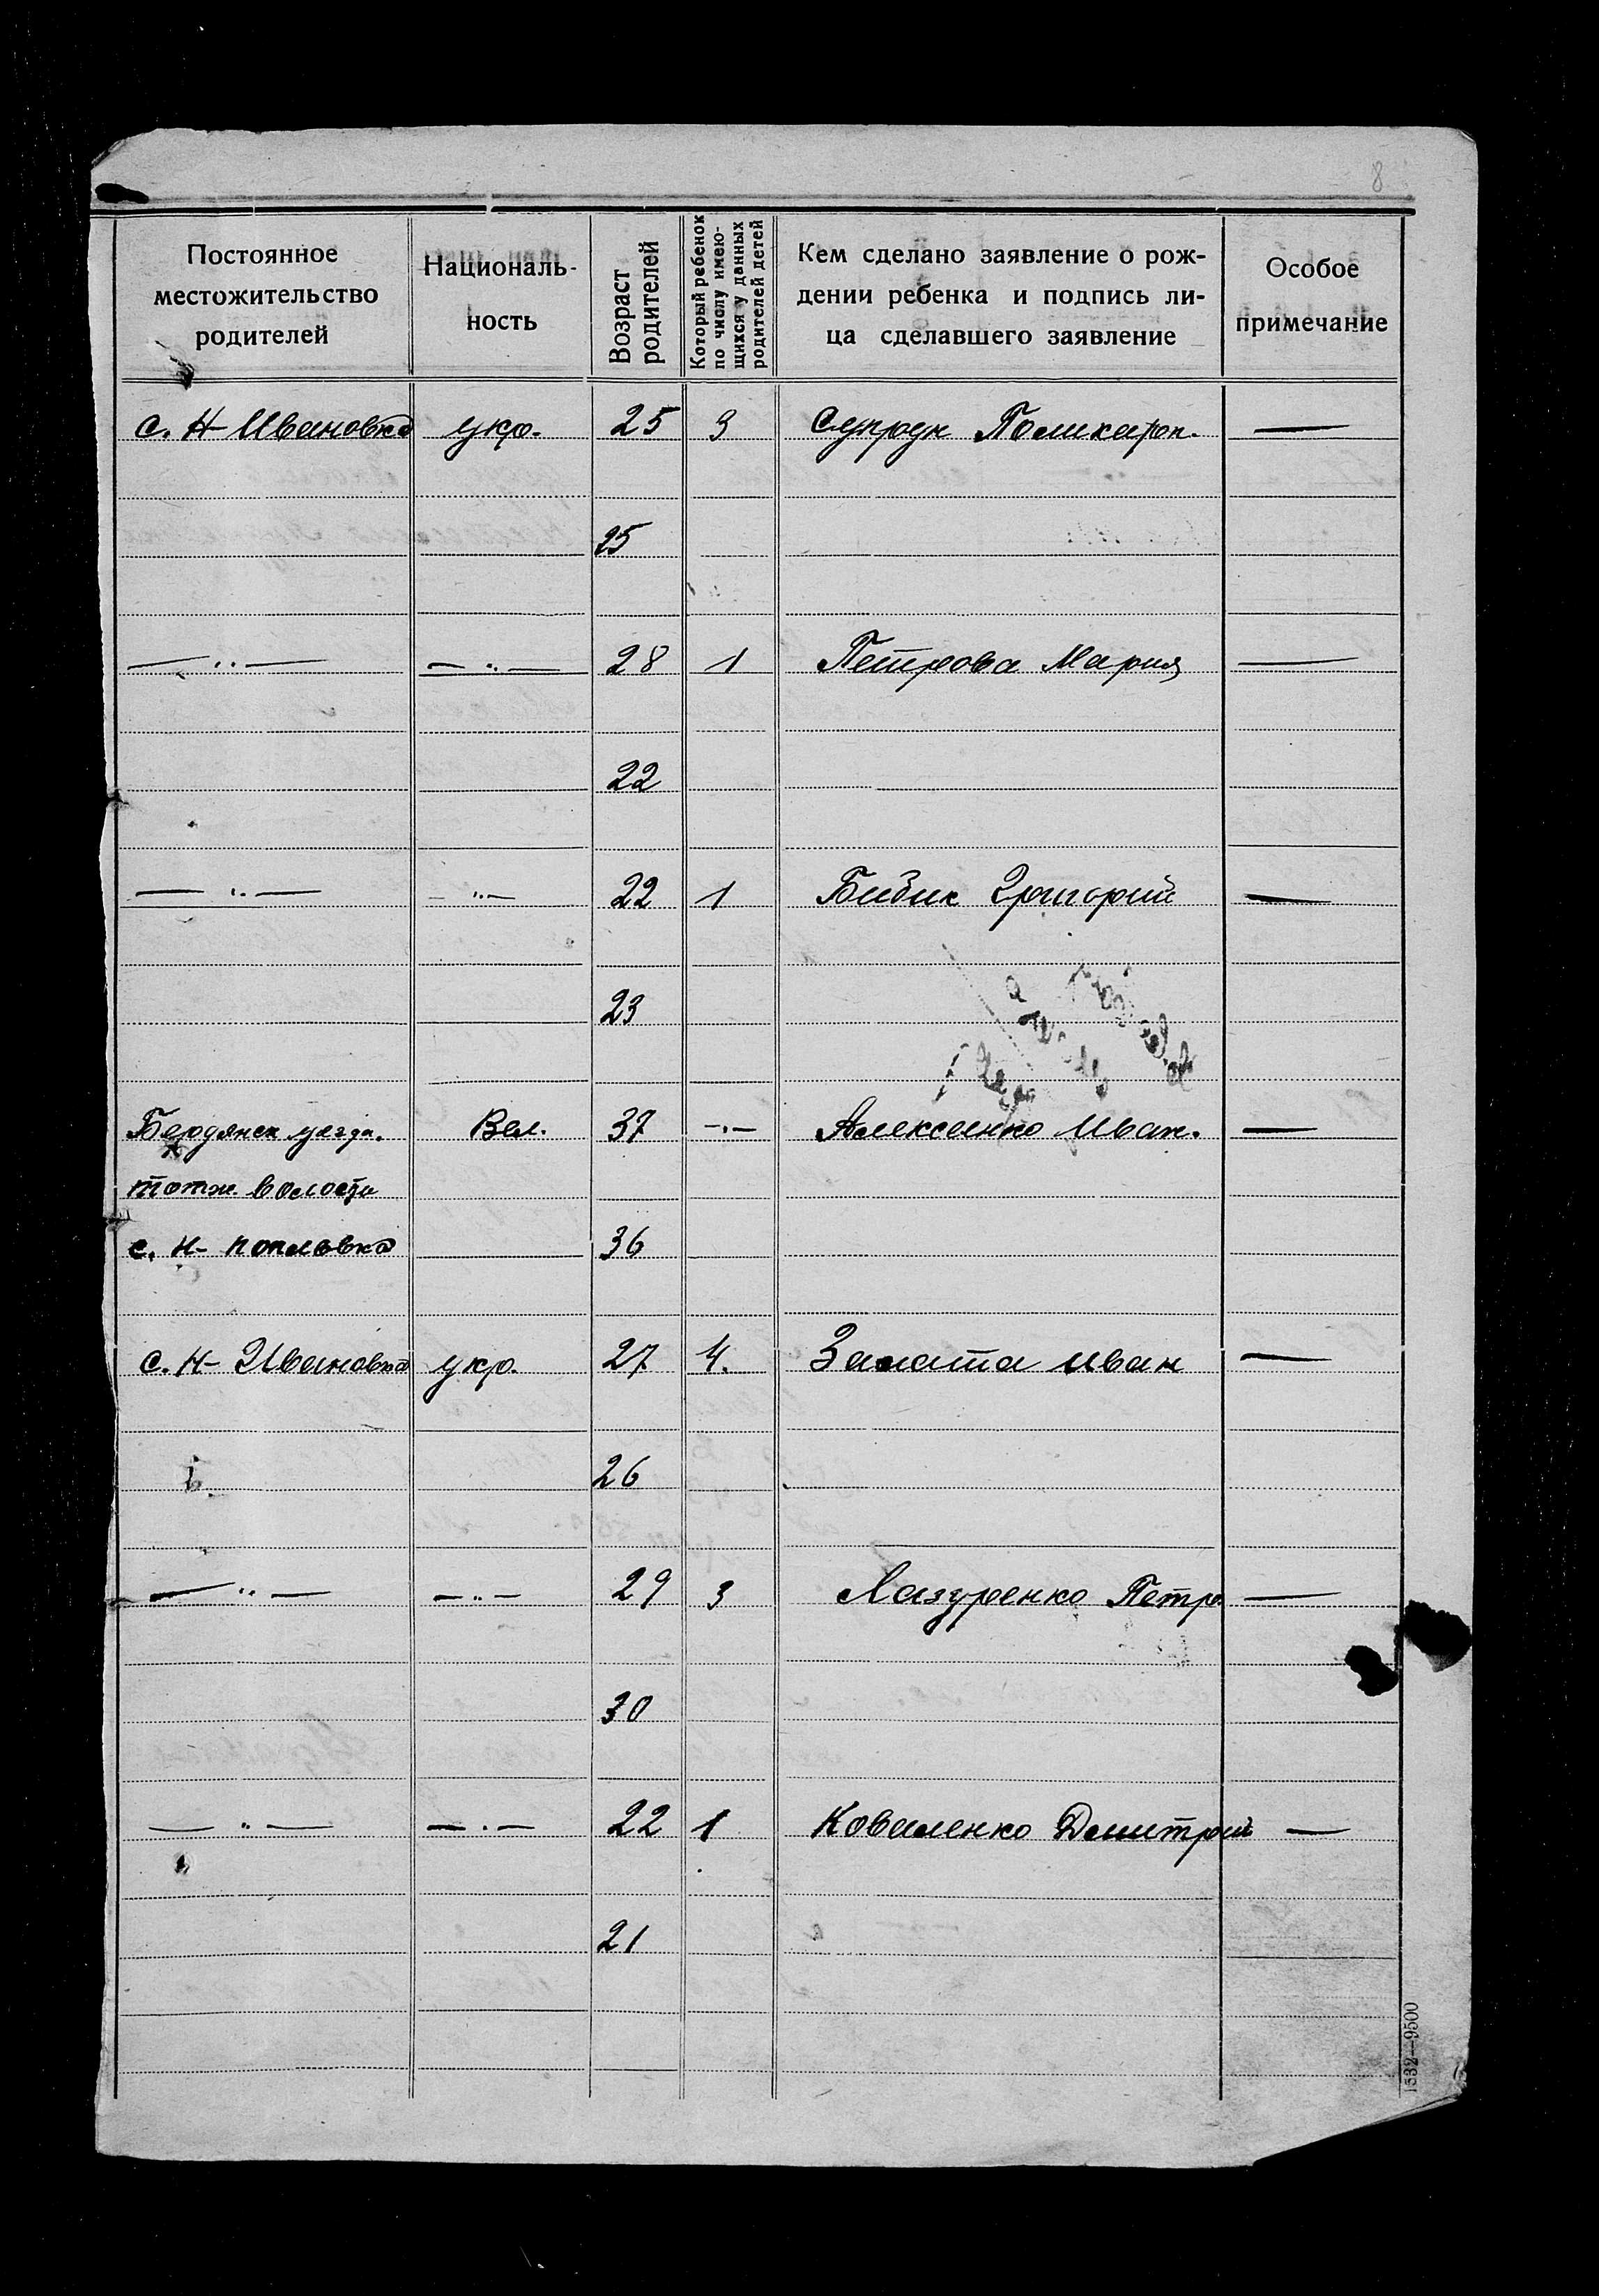 8
Постоянное
местожительство
родителей
Националь-
ность
Возраст
родителей
Который ребенок
по числу имею-
щихся у данных
родителей детей
Кем сделано заявление о рож-
дении ребенка и подпись ли-
ца сделавшего заявление
Особое
примечание
с. Н-Ивановка укр. 25 3 Супрун Поликарп. —
25
— " — — " — 28 1 Петрова Мария —
22
— " — — " — 22 1 Бибик Григорий —
23
Бердянск уезда. Вел. 37 — " — Алексеенко Иван. —
тотж. волости
с. Н- 36
с. Н- Ивановка укр. 27 4. Заната Иван —
26
— " — — " — 29 3 Лазуренко Петро —
30
— " — — " — 22 1 Коваленко Дмитрий —
21
1532—9500